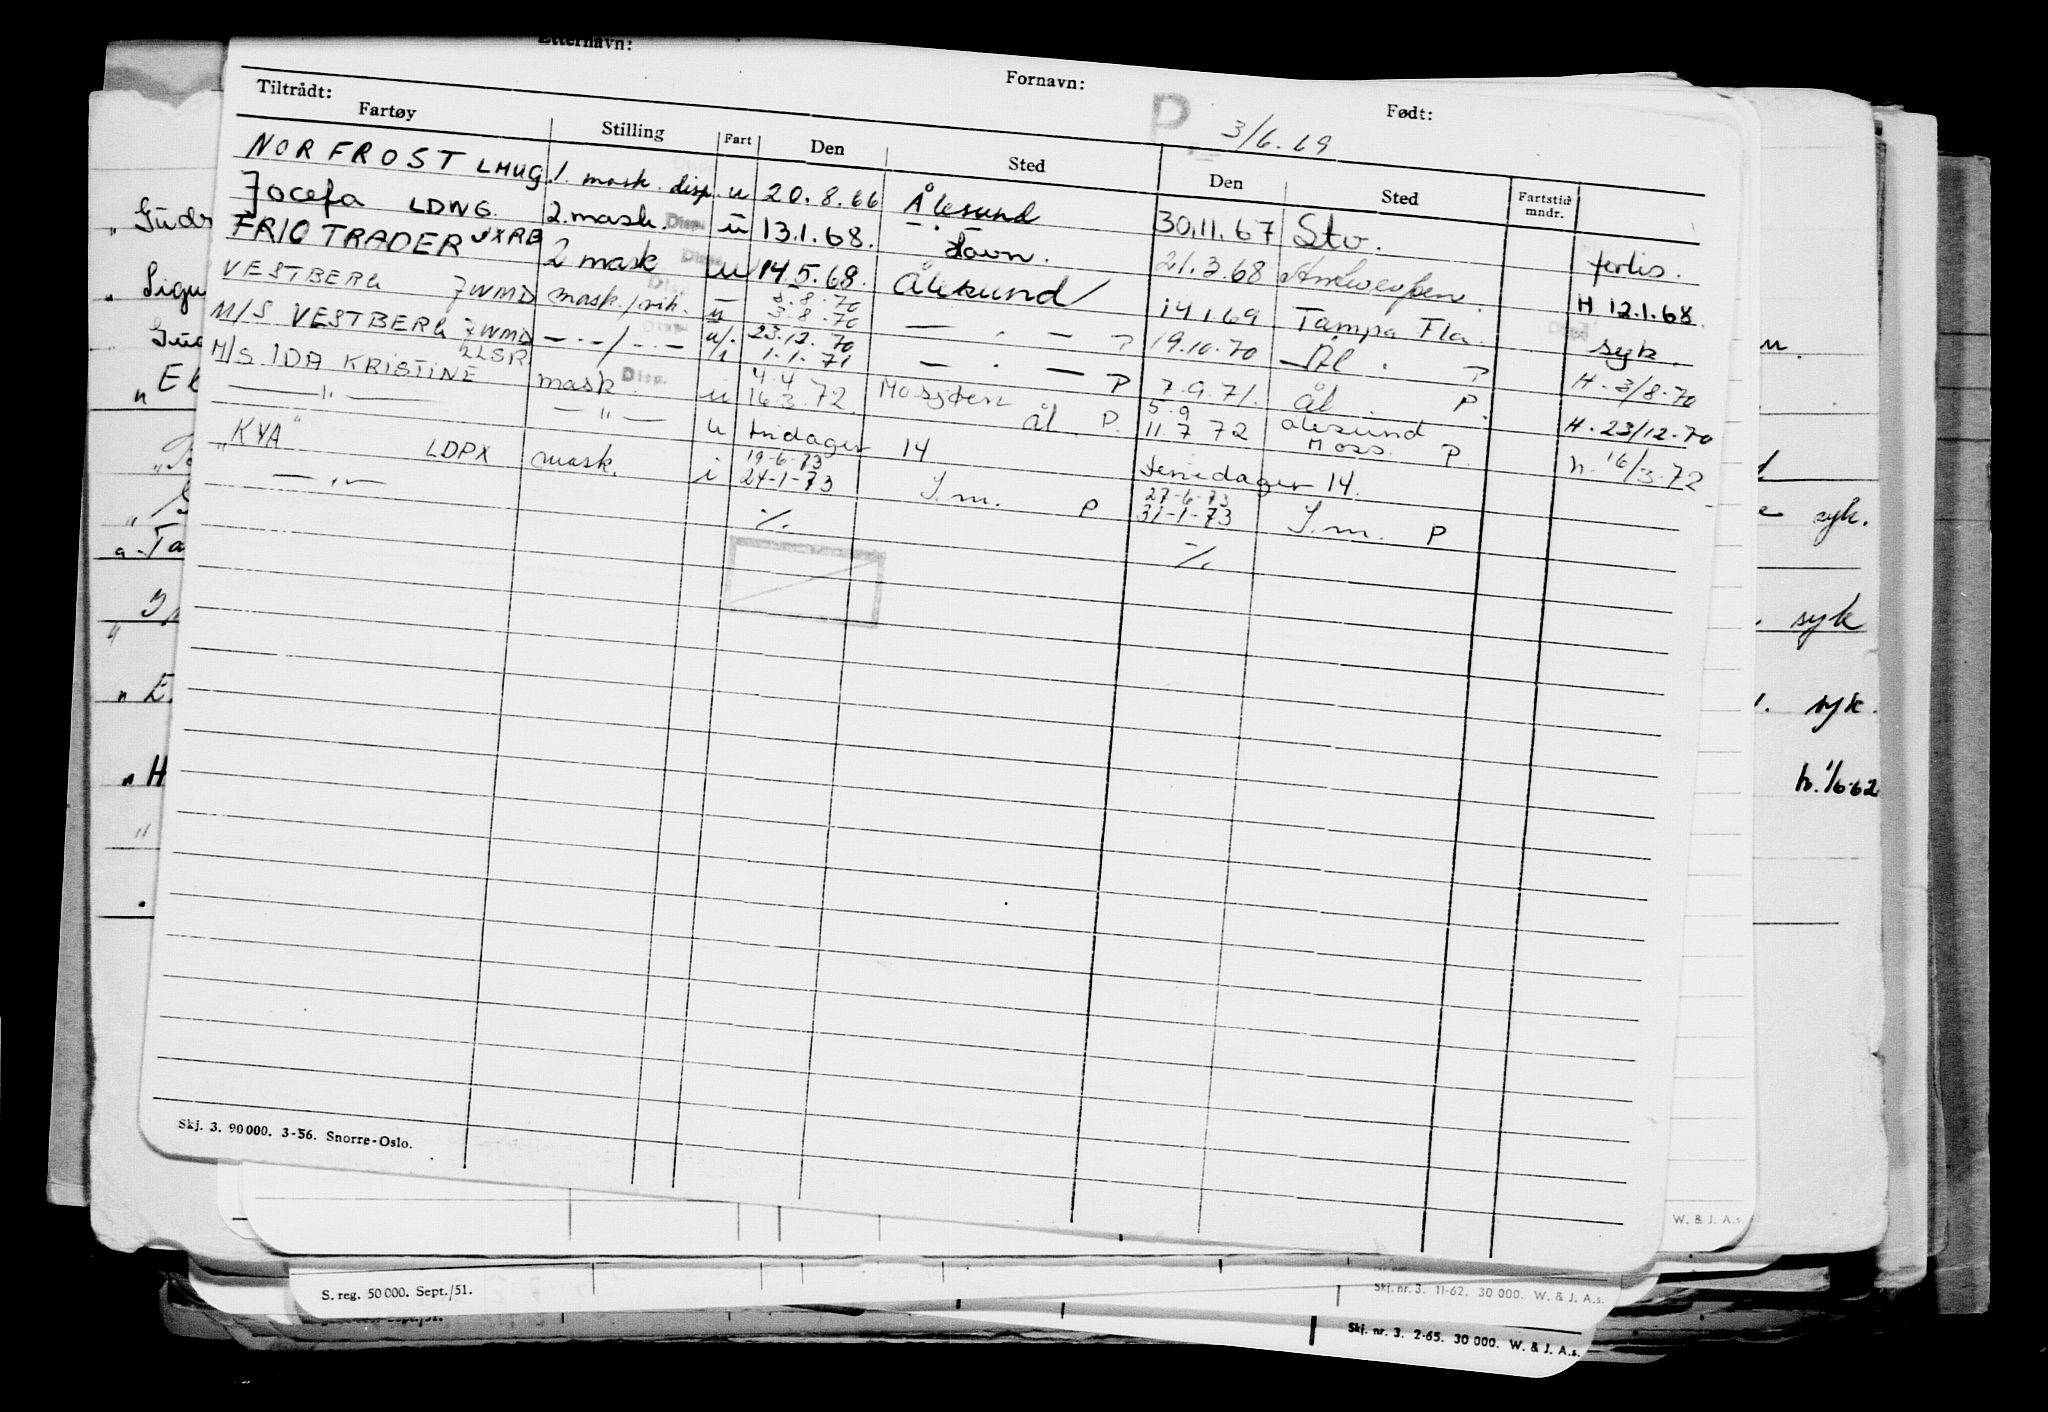 Etternavn: Fornavn: Født:
Tiltrådt: P 3/6.69
Fartøy Stilling Fart Den Sted Den Sted Fartstid mndr.
NORFROST LMUG 1. mask. disp. u 20.8.66 Ålesund 30.11.67 Stv. forlis.
Jocefa LDWG 2. mask. Disp. u 13.1.68. — . — Havn. 21.3.68 Antwerpen H 12.1.68.
FRIO TRADER JXRB 2 mask Disp. u 14.5.68. Ålesund 14.1.69 Tampa Fla. syk.
VESTBERG JWMD mask. Disp. u 3.8.70 3.8.70 — . — P 19.10.70 Ål. P H. 3/8.70
M/S VESTBERG JWMD — . — / — . — Disp. u/i 23.12.70 1.1.71 — . — P 7.9.71. Ål. P. H. 23/12.70
M/S IDA KRISTINE LLSR mask. Disp. u 4.4 16.3.72. Mosjøen Ål. P. 5.9 11.7 72 Ålesund Moss. P. h. 16/3.72
— " — — " — u tridager 14 14.
"KYA" LDPX mask. i 19-6-73 24-1-73 J.m. P 27-6-73 31-1-73 J.m. P
— " — ./. ./.
Skj. 3. 90000. 3-56. Snorre-Oslo.
Gudr
Sigu
"E
"H
n.
syk.
syk
syk.
h. 1/6-62
W. & J. A.s.
S. reg. 50 000. Sept./51.
Skj. nr. 3. 11-62. 30 000. W. & J. A.s.
Skj. nr. 3. 2-65. 30 000. W. & J. A.s.